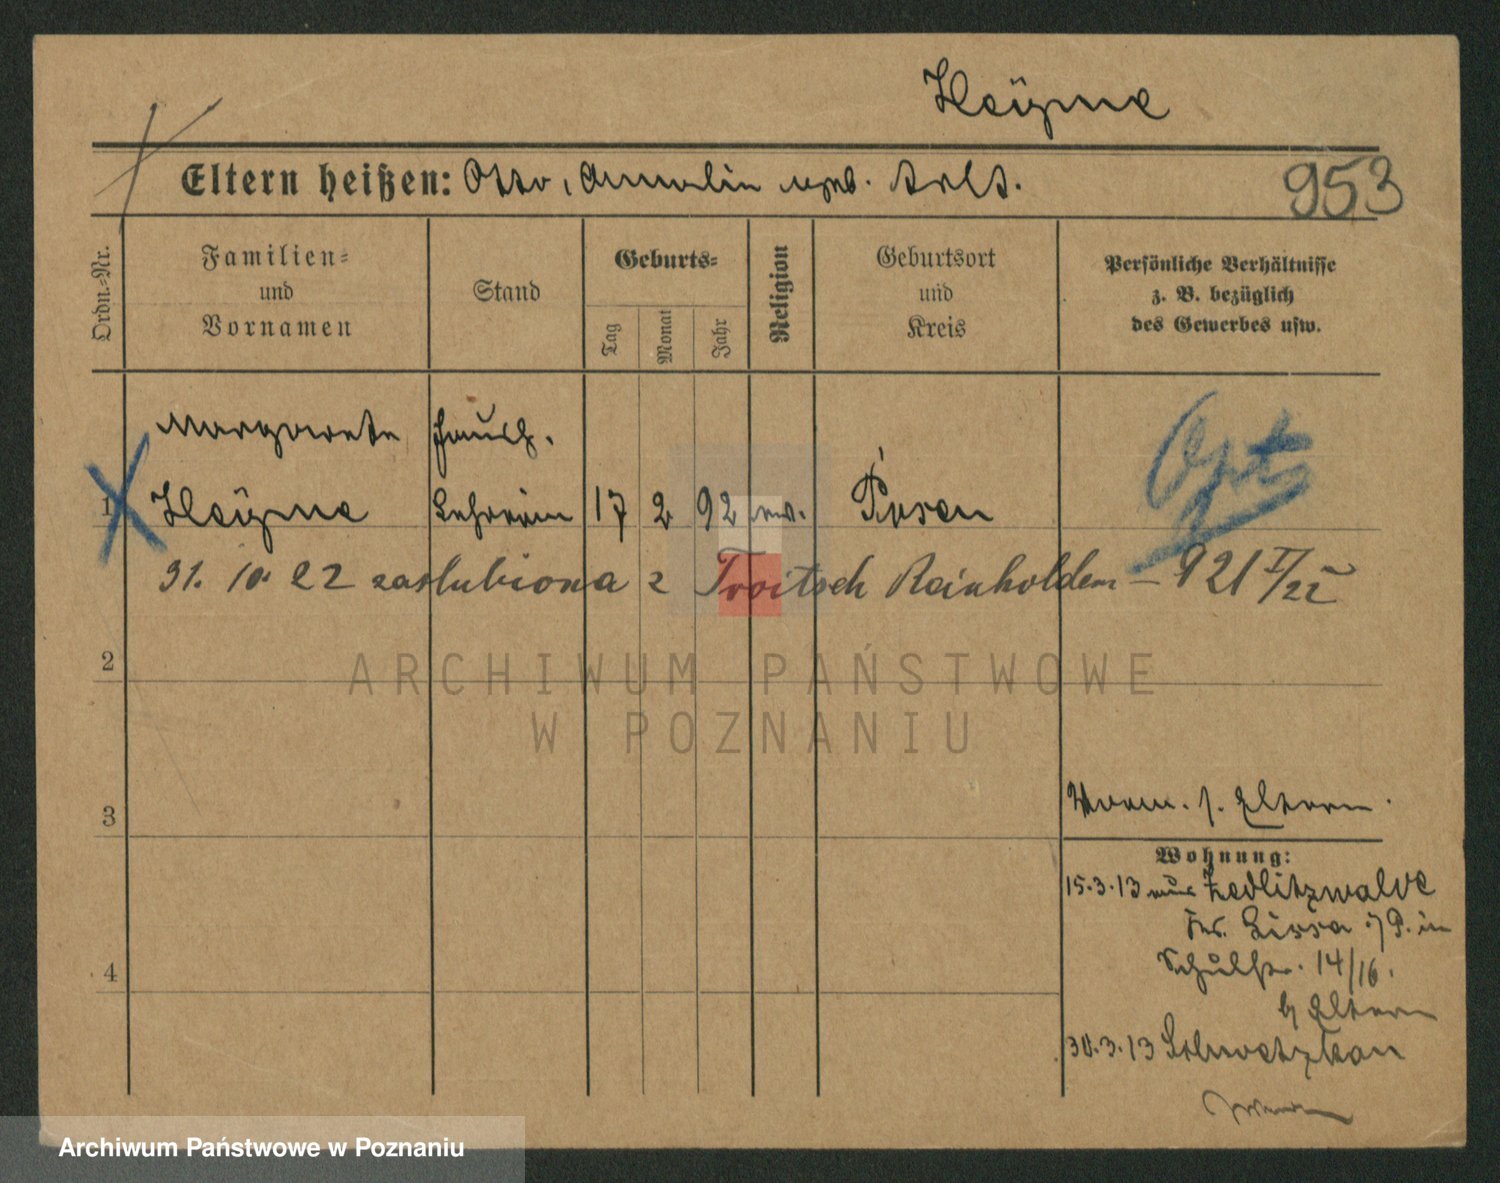 Heÿme
Eltern heißen: Otto, Annalin geb. Arlt.
953
Ordn.-Nr.
Familien-
und
Vornamen
Stand
Geburts-
Tag
Monat
Jahr
Religion
Geburtsort
und
Kreis
Persönliche Verhältnisse
z. B. bezüglich
des Gewerbes usw.
Margarete
Heÿme
Lehrerin
17 2 92 ev.
Posen
Opt
1
31. 10. 22 zaslubiona z Troitsch Reinholdem – 921 I/22
2
ARCHIWUM PAŃSTWOWE
W POZNANIU
3
Vorm. s. Eltern.
Wohnung:
15.3.13 aus Zedlitzwalde
Krs. Lissa i/P. in
Schulstr. 14/16.
b/ Eltern
4
30.3.13 Schwetzkau
Archiwum Państwowe w Poznaniu